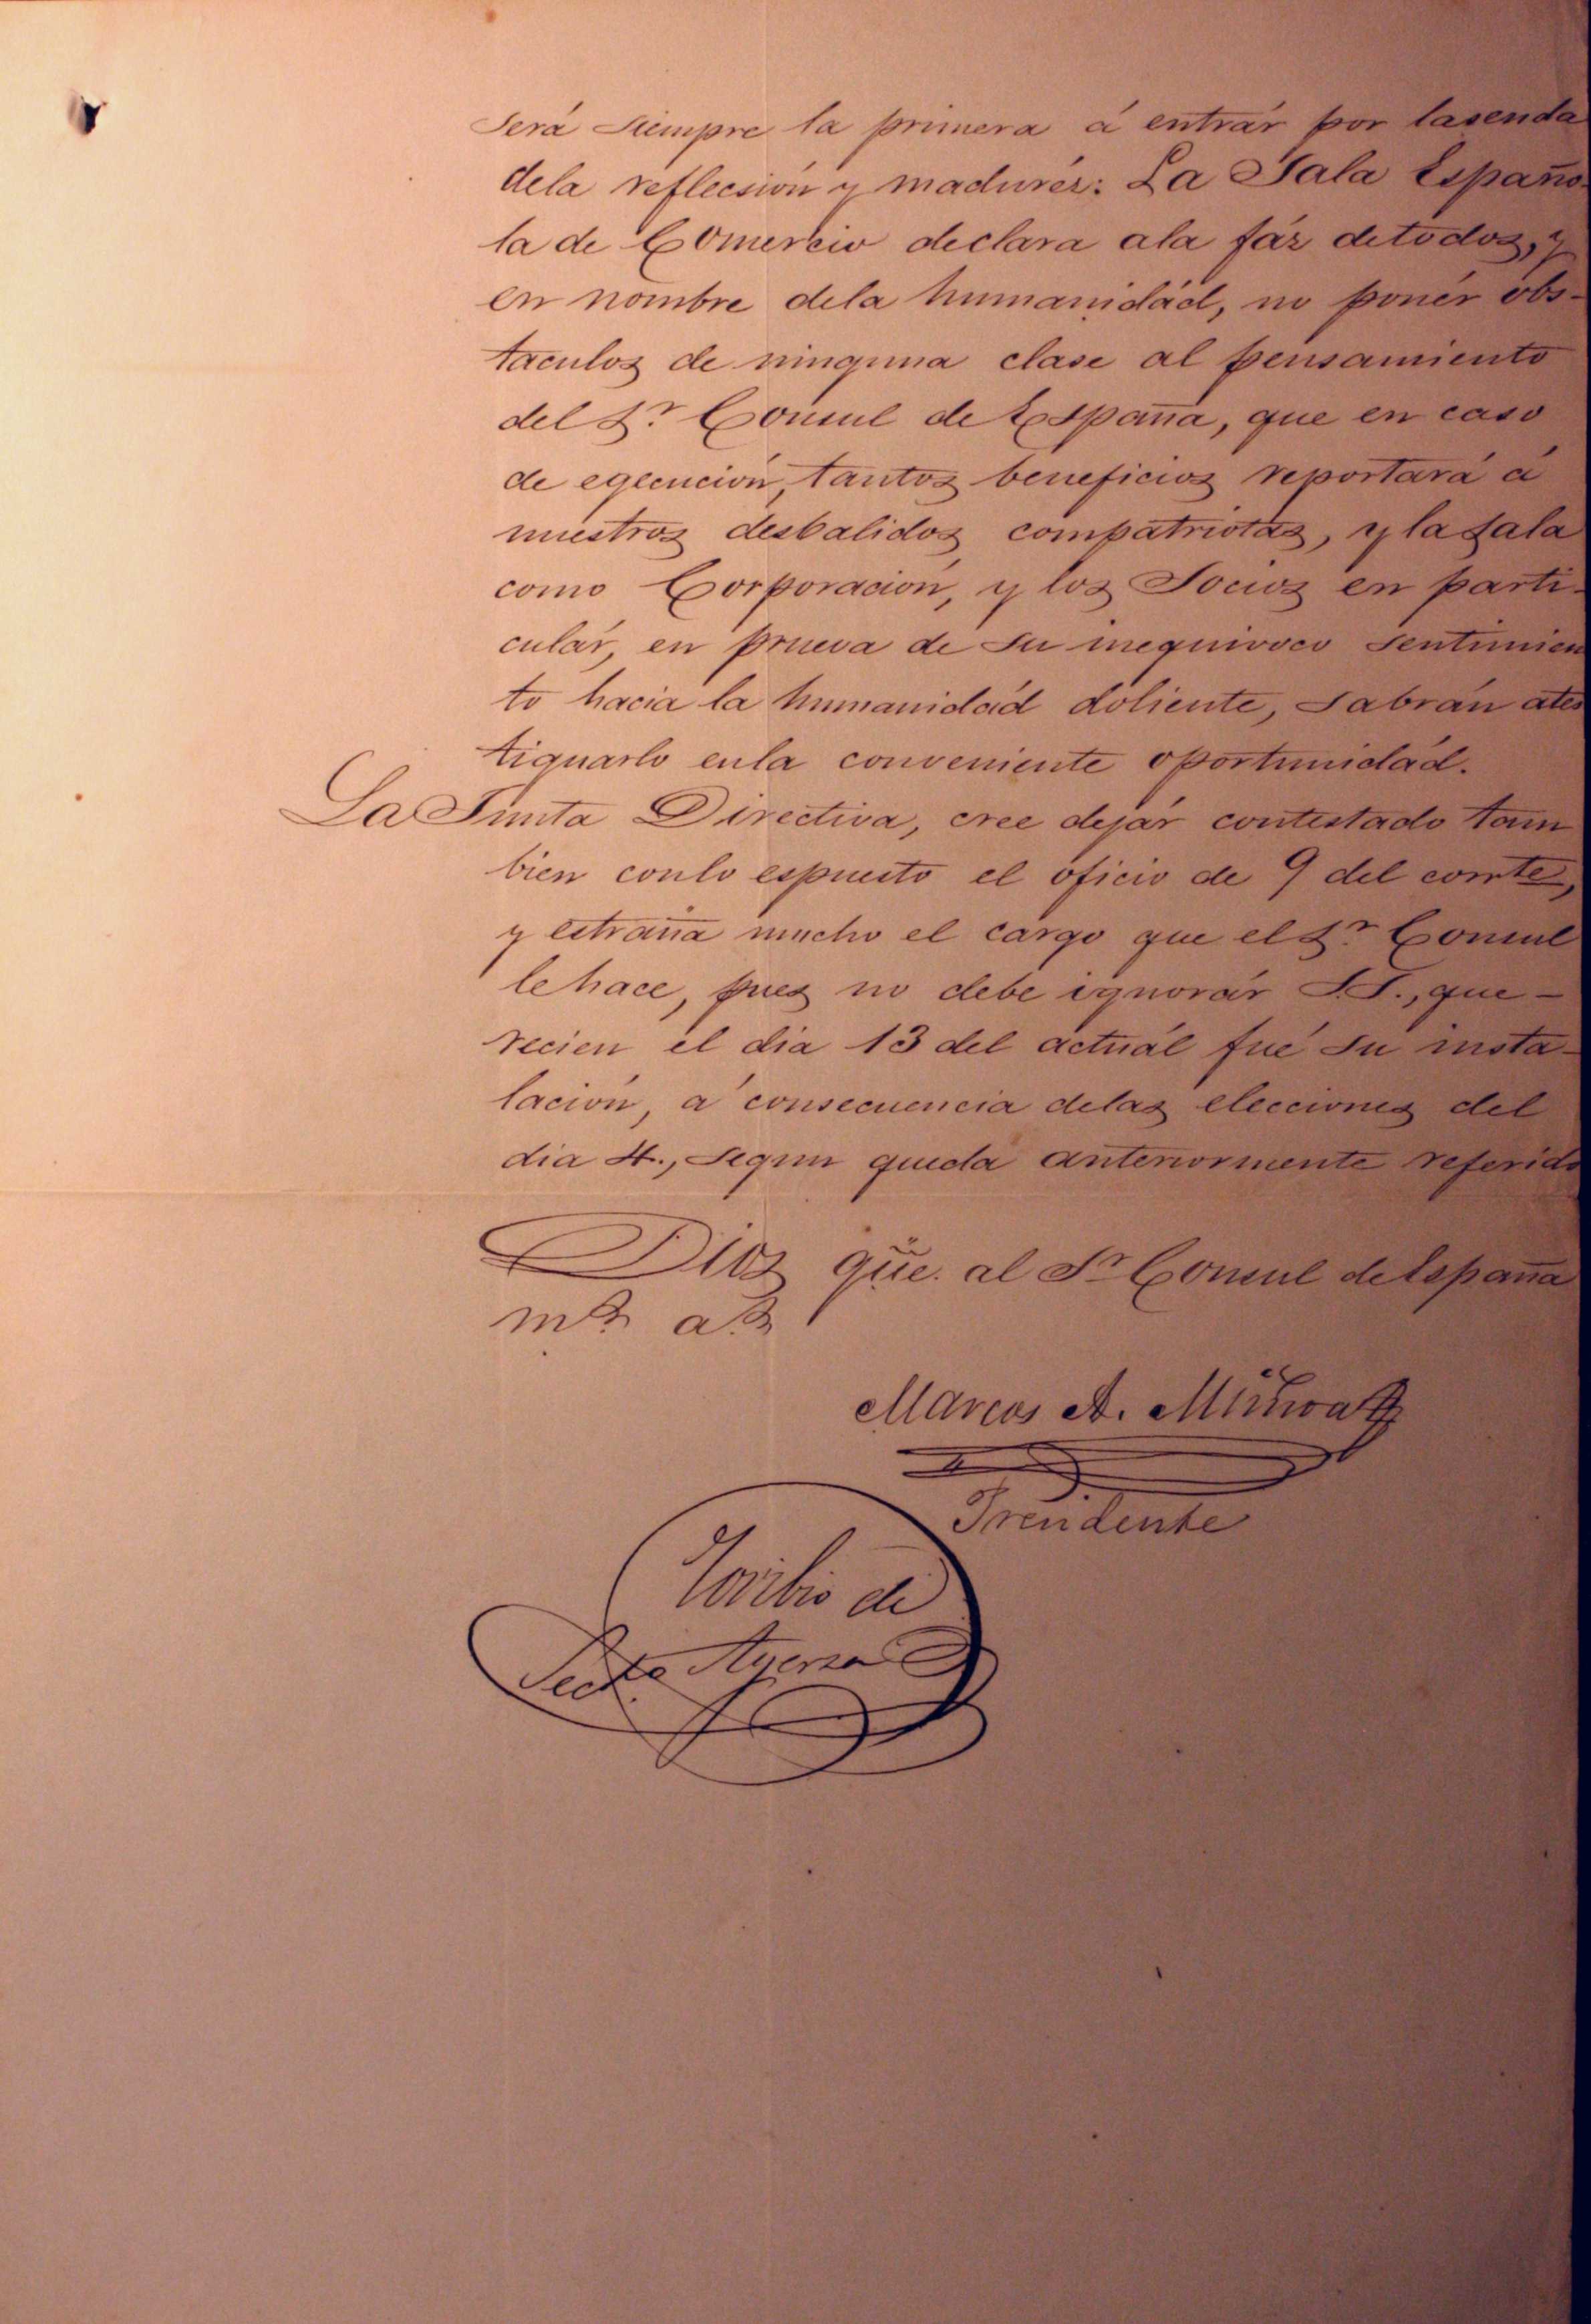 Será siempre la primera á entrár por lasenda
dela reflecsión y madurér: La Sala Españo-
la de Comercio declara ala fáz detodos, y
en nombre dela humanidád, no ponér obs-
taculos de ninguna clase al pensamiento
del Sr. Consul de España, que en caso
de egecución, tantos beneficios reportará á
nuestros desbalidos compatriotas, y la Sala
como Corporación, y los Socios en parti-
culár, en prueva de su inequivoco sentimien
to hacia la humanidád doliente, sabrán ates
tiguarlo enla conveniente oportunidád.
La Junta Directiva, cree dejár contestado tam
bien conlo espuesto el oficio de 9 del corrte,
y estraña mucho el cargo que el Sr. Consul
le hace, pues no debe ignorár S.S., que-
recien el dia 13 del actuál fué su insta-
lación, á consecuencia delas elecciones del
dia 4., segun queda anteriormente referido
Dios güe. al Sr Consul de España
ms. as.
Marcos A. 
Presidente
Toribio de
Ayerza
Secto.